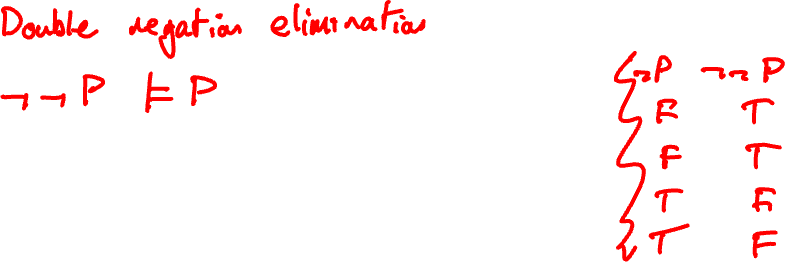 Double negation elimination
¬¬P ⊨ P
¬P ¬¬P
F T
F T
T F
T F